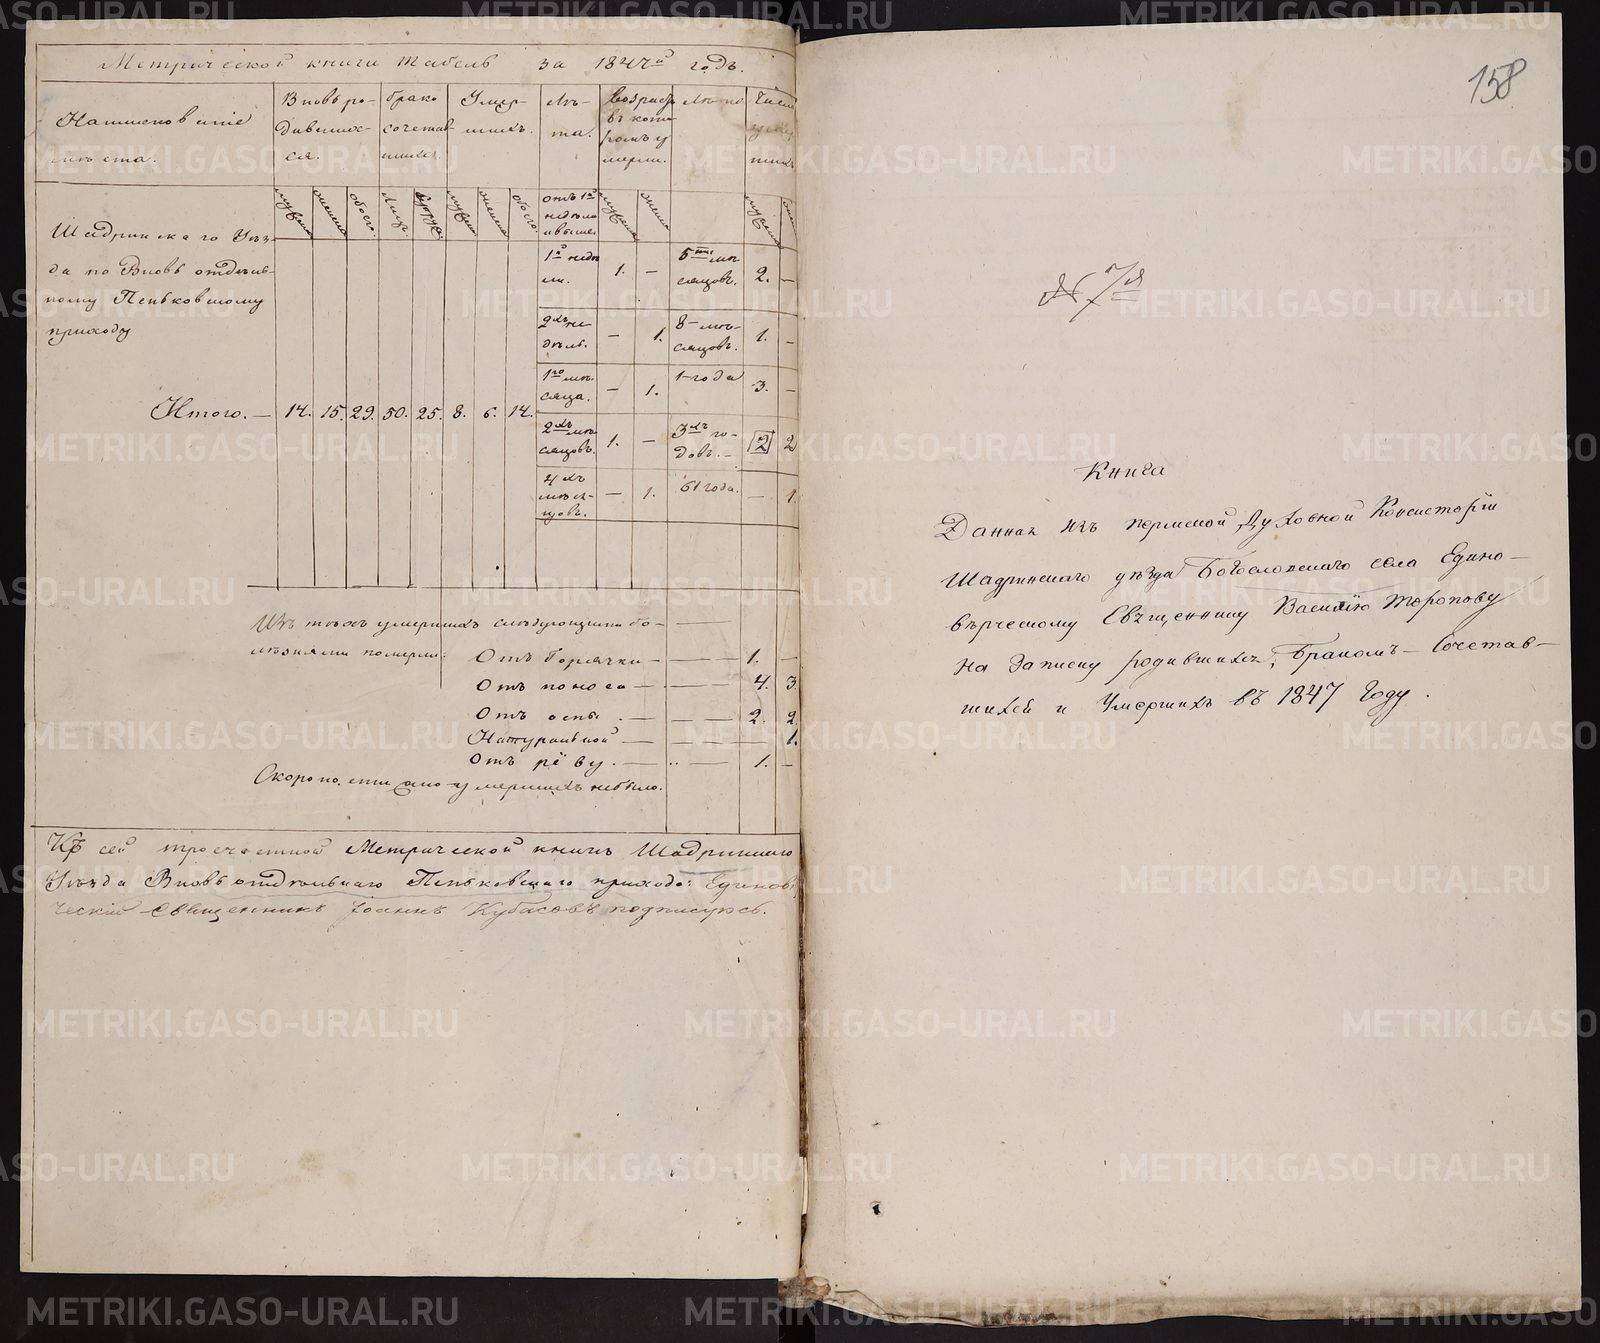 Метрической книги табель за 1847й годъ.
Наименованіе мѣста.
Вновь родившихся.
брако сочетавшихся.
Умершихъ.
Лѣта.
Возрастъ въ которомъ умерли.
мужеска
женска
обоего.
мужеска
женска
обоего.
отъ 1й недѣли и выше.
мужеска
женска
мужеска
Шадринскаго Уѣз-
да по Вновь отдѣль-
ному Пеньковскому
приходу
1й недѣли. 1. — 5ти мѣсяцовъ. 2. —
2хъ недѣль. — 1. 8-мѣсяцовъ. 1. —
1го мѣсяца. — 1. 1-года 3. —
Итого. — 14. 15. 29. 50. 25. 8. 6. 14.
2хъ мѣсяцовъ. 1. — 3хъ годовъ. — 2 2
4хъ мѣсяцовъ. — 1. 61 года. — 1.
Изъ тѣхъ умершихъ слѣдующими бо-
лѣзнями померли:
Отъ Горячки — 1. —
Отъ поноса — 4. 3.
Отъ оспы. — 2. 2.
Натуральной — 1.
Отъ рёву. — 1. —
Скоропостижно умершихъ небыло.
Къ сей троечастной Метрической книгѣ Шадринскаго
Уѣзда Вновь отдѣльнаго Пеньковскаго прихода: Единовѣр
ческій Священникъ Іоаннъ Кубасовъ подписуюсь.
158
№ 7й
Книга
Данная изъ пермской Духовной Консисторіи
Шадринскаго уѣзда Богословскаго села Едино-
вѣрческому Священнику Василію Торопову
на Записку родившихся, Бракомъ-Сочетав-
шихся и Умершихъ въ 1847 Году.
METRIKI.GASO-URAL.RU